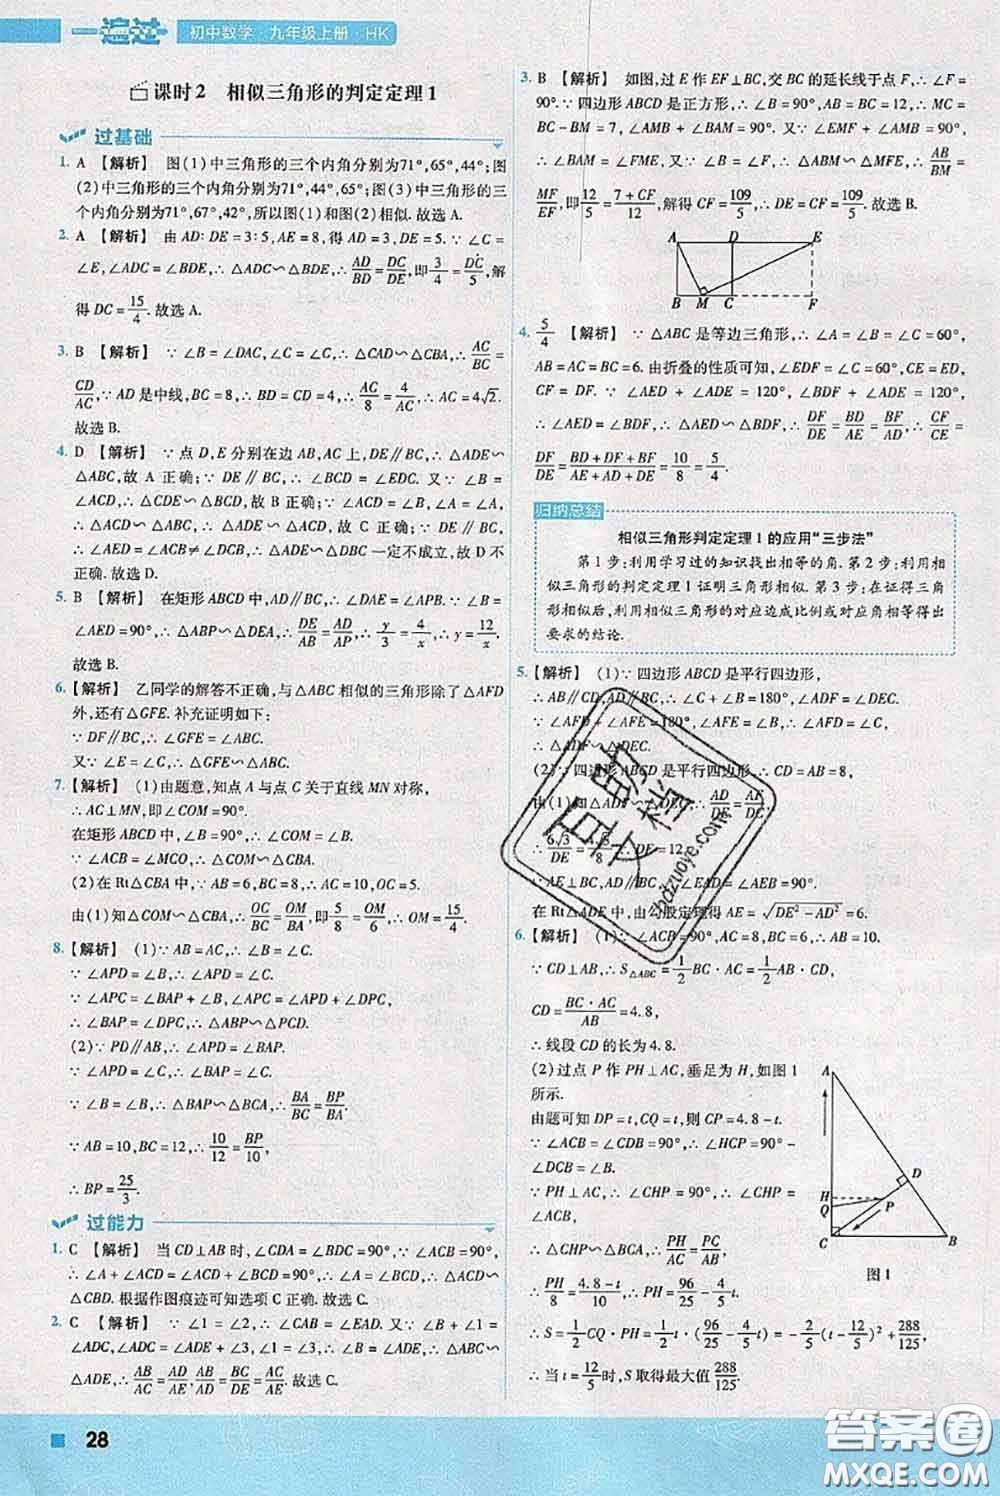 一遍过 初中数学·九年级上册·HK
课时2 相似三角形的判定定理1
过基础
1. A 【解析】 图(1)中三角形的三个内角分别为71°,65°,44°;图
(2)中三角形的三个内角分别为71°,44°,65°;图(3)中三角形的三
个内角分别为71°,67°,42°,所以图(1)和图(2)相似.故选A.
2. A 【解析】 由AD∶DE=3∶5,AE=8,得AD=3,DE=5.∵∠C=
∠E,∠ADC=∠BDE,∴△ADC∽△BDE,∴AD/BD=DC/DE,即3/4=DC/5,解
得DC=15/4.故选A.
3. B 【解析】 ∵∠B=∠DAC,∠C=∠C,∴△CAD∽△CBA,∴AC/BC=
CD/AC,∵AD是中线,BC=8,∴BD=CD=4,∴AC/8=4/AC,∴AC=4√2.
故选B.
4. D 【解析】 ∵点D,E分别在边AB,AC上,DE∥BC,∴△ADE∽
△ABC,故A正确;∵DE∥BC,∴∠BCD=∠EDC.又∵∠B=
∠ACD,∴△CDE∽△BCD,故B正确;∵∠B=∠ACD,∠A=∠A,
∴△ACD∽△ABC,∴△ADE∽△ACD,故C正确;∵DE∥BC,
∴∠AED=∠ACB≠∠ACD,∴∠AED=∠ACD一定不成立,故D不
正确.故选D.
5. B 【解析】 在矩形ABCD中,AD∥BC,∴∠DAE=∠APB.∵∠B=
∠AED=90°,∴△ABP∽△DEA,∴DE/AB=AD/AP,∴y/3=4/x,∴y=12/x.
故选B.
6. 【解析】 乙同学的解答不正确,与△ABC相似的三角形除了△AFD
外,还有△GFE.补充证明如下:
∵DF∥BC,∴∠GFE=∠ABC.
又∵∠E=∠C,∴△GFE∽△ABC.
7. 【解析】 (1)由题意,知点A与点C关于直线MN对称,
∴AC⊥MN,即∠COM=90°.
在矩形ABCD中,∠B=90°,∴∠COM=∠B.
∵∠ACB=∠MCO,∴△COM∽△CBA.
(2)在Rt△CBA中,∵AB=6,BC=8,∴AC=10,OC=5.
由(1)知△COM∽△CBA,∴OC/BC=OM/BA,即5/8=OM/6,∴OM=15/4.
8. 【解析】 (1)∵AB=AC,∴∠B=∠C.
∵∠APD=∠B,∴∠APD=∠B=∠C.
∵∠APC=∠BAP+∠B,∠APC=∠APD+∠DPC,
∴∠BAP=∠DPC,∴△ABP∽△PCD.
(2)∵PD∥AB,∴∠APD=∠BAP.
∵∠APD=∠C,∴∠BAP=∠C.
∵∠B=∠B,∴△BAP∽△BCA,∴BA/BC=BP/BA.
∵AB=10,BC=12,∴10/12=BP/10,
∴BP=25/3.
过能力
1. C 【解析】 当CD⊥AB时,∠CDA=∠BDC=90°,∵∠ACB=90°,
∴∠A+∠ACD=∠ACD+∠BCD=90°,∴∠A=∠BCD,∴△ACD∽
△CBD.根据作图痕迹可知选项C正确.故选C.
2. C 【解析】 ∵∠1=∠2,∴∠CAB=∠EAD.又∵∠B+∠1=
∠ADC,∠ADC=∠ADE+∠3,∠1=∠3,∴∠B=∠ADE,∴△ABC∽
△ADE,∴AB/AC=AD/AE,AB/AD=BC/DE,BC/AC=DE/AE.故选C.
3. B 【解析】 如图,过E作EF⊥BC,交BC的延长线于点F,∴∠F=
90°.∵四边形ABCD是正方形,∴∠B=90°,AB=BC=12,∴MC=
BC-BM=7,∠AMB+∠BAM=90°.又∵∠EMF+∠AMB=90°,
∴∠BAM=∠FME,又∵∠B=∠F=90°,∴△ABM∽△MFE,∴AB/BM=
MF/EF,即12/5=(7+CF)/12,解得CF=109/5,∴DE=CF=109/5.故选B.
A D E
B M C F
4. 5/4 【解析】 ∵△ABC是等边三角形,∴∠A=∠B=∠C=60°,
AB=AC=BC=6.由折叠的性质可知,∠EDF=∠C=60°,CE=ED,
CF=DF.∴∠AED+∠ADE=120°,∠BDF+∠ADE=120°,
∴∠AED=∠BDF,∴△AED∽△BDF,∴DF/DE=BD/AE=BF/AD,∴CF/CE=
DF/DE=(BD+DF+BF)/(AE+AD+DE)=10/8=5/4.
归纳总结
相似三角形判定定理1的应用“三步法”
第1步:利用学习过的知识找出相等的角.第2步:利用相
似三角形的判定定理1证明三角形相似.第3步:在证得三角
形相似后,利用相似三角形的对应边成比例或对应角相等得出
要求的结论.
5. 【解析】 (1)∵四边形ABCD是平行四边形,
∴AB∥CD,AD∥BC,∴∠C+∠B=180°,∠ADF=∠DEC.
∵∠AFD+∠AFE=180°,∠AFE=∠B,∴∠AFD=∠C,
∴△ADF∽△DEC.
(2)∵四边形ABCD是平行四边形,∴CD=AB=8.
由(1)知△ADF∽△DEC,∴AD/DE=AF/DC,
∴6√3/DE=4√3/8,∴DE=12.
∵AE⊥BC,AD∥BC,∴∠EAD=∠AEB=90°.
在Rt△ADE中,由勾股定理得AE=√(DE²-AD²)=6.
6. 【解析】 (1)∵∠ACB=90°,AC=8,BC=6,∴AB=10.
∵CD⊥AB,∴S△ABC=1/2BC·AC=1/2AB·CD,
CD=BC·AC/AB=4.8,
∴线段CD的长为4.8.
(2)过点P作PH⊥AC,垂足为H,如图1
所示.
由题可知DP=t,CQ=t,则CP=4.8-t.
∵∠ACB=∠CDB=90°,∴∠HCP=90°-
∠DCB=∠B.
∵PH⊥AC,∴∠CHP=90°,∴∠CHP=
∠ACB,
∴△CHP∽△BCA,∴PH/AC=PC/AB,
∴PH/8=(4.8-t)/10,∴PH=96/25-4/5t.
∴S=1/2CQ·PH=1/2t·(96/25-4/5t)=-2/5(t-12/5)²+288/125,
∴当t=12/5时,S取得最大值288/125.
A
D
H
Q P
C B
图1
百助文档
bdzuoye.com
28
答案圈
MXQE.COM